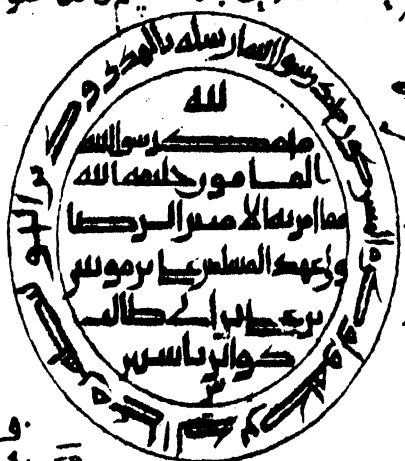 محمد رسول الله ارسله بالهدى ودين الحق ليظهره على الدين كله ولو كره المشركون
لله
محمد رسول الله
المامون خليفة الله
مما امر به الامير الرضا
ولي عهد المسلمين علي بن موسى
بن علي بن ابي طالب
ذو الرياستين